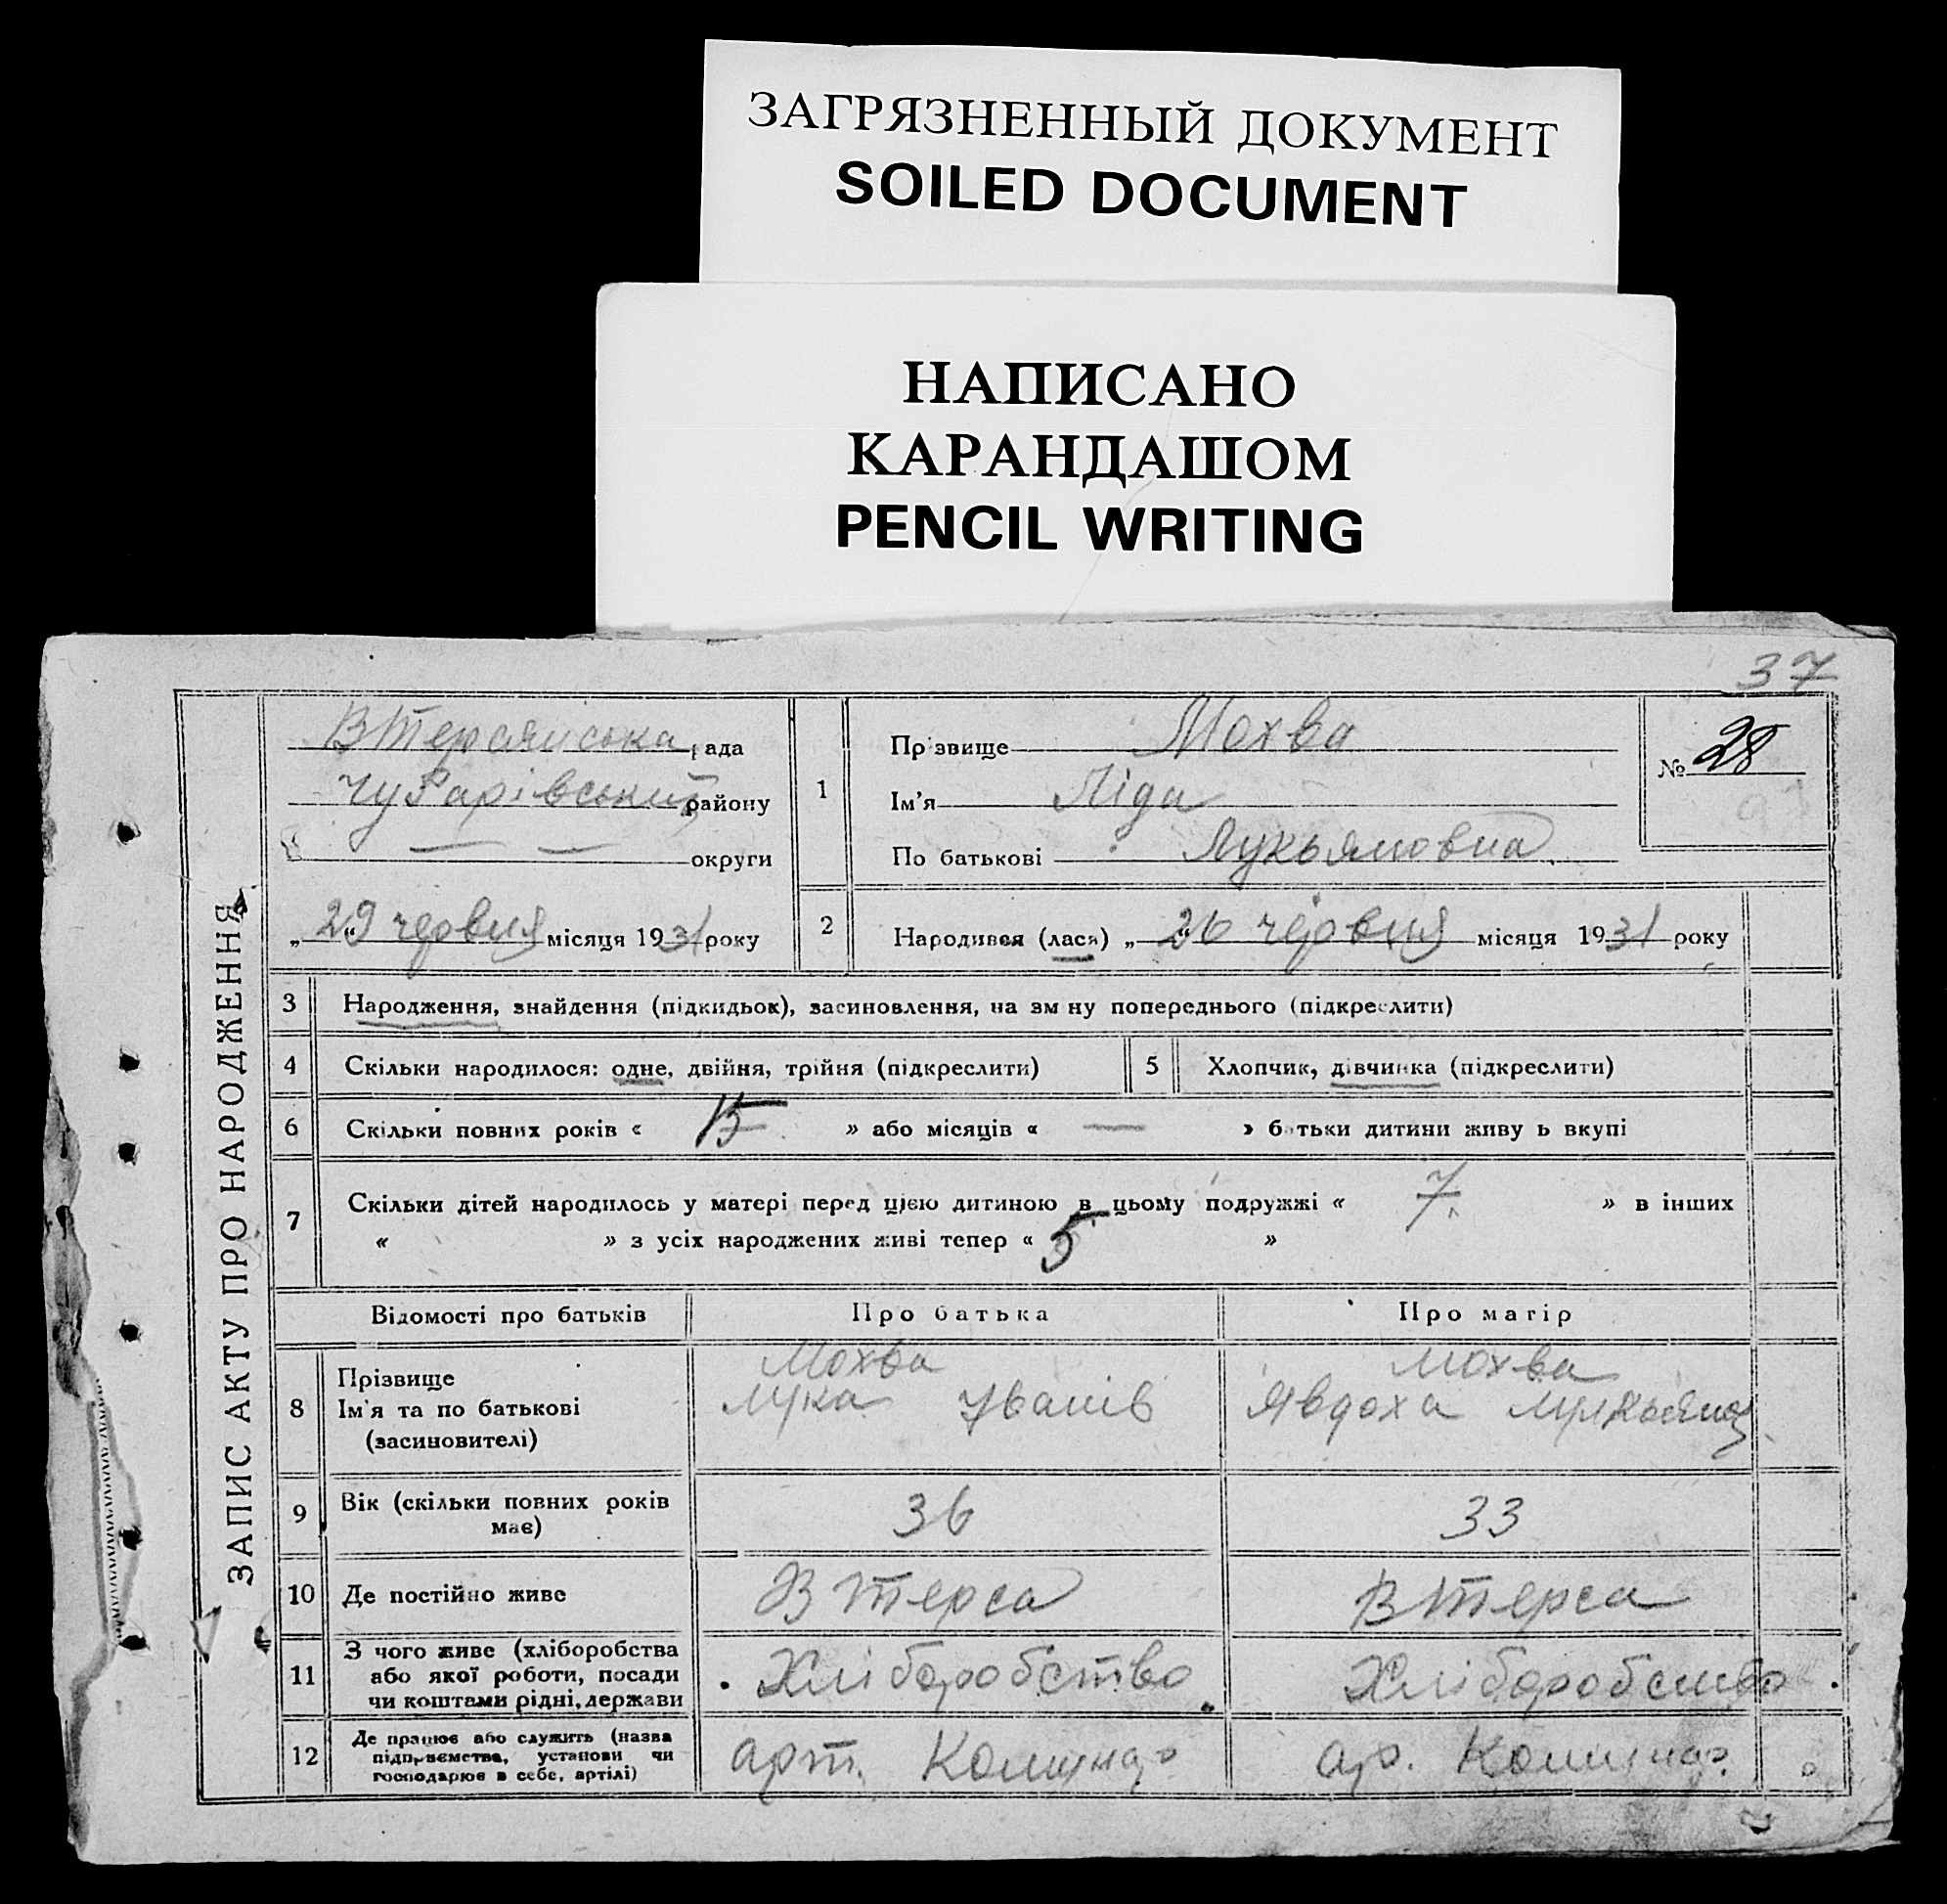 ЗАГРЯЗНЕННЫЙ ДОКУМЕНТ
SOILED DOCUMENT
НАПИСАНО
КАРАНДАШОМ
PENCIL WRITING
37
ЗАПИС АКТУ ПРО НАРОДЖЕННЯ
В Терсянська рада
району
— — округи
„ 29 " червня місяця 1931 року
1
Прізвище Мохва
Ім'я Ліда
По батькові Лукьяновна
№ 28
2 Народився (лася) „ 26 " червня місяця 1931 року
3 Народження, знайдення (підкидьок), засиновлення, на зміну попереднього (підкреслити)
4 Скільки народилося: одне, двійня, трійня (підкреслити) 5 Хлопчик, дівчинка (підкреслити)
6 Скільки повних років « 15 » або місяців « — » батьки дитини живуть вкупі
7 Скільки дітей народилось у матері перед цією дитиною в цьому подружжі « 7 » в інших
« » з усіх народжених живі тепер « 5 »
Відомості про батьків Про батька Про матір
8 Прізвище
Ім'я та по батькові
(засиновителі)
Мохва
Лука Уванів
Мохва
Явдоха
9 Вік (скільки повних років
має)
36 33
10 Де постійно живе В Терса В Терса
11 З чого живе (хліборобства
або якої роботи, посади
чи коштами рідні, держави
Хліборобство Хліборобство
12 Де працює або служить (назва
підприємства, установи чи
господарює в себе, артілі)
арт. Комунар ар. Комунар